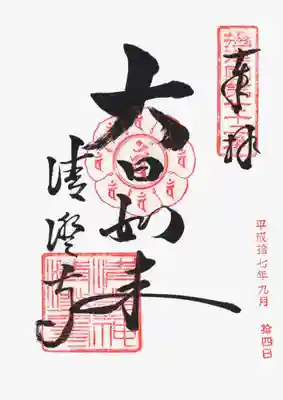 奉拝
平成拾七年九月 拾四日
大日如来
清澄寺